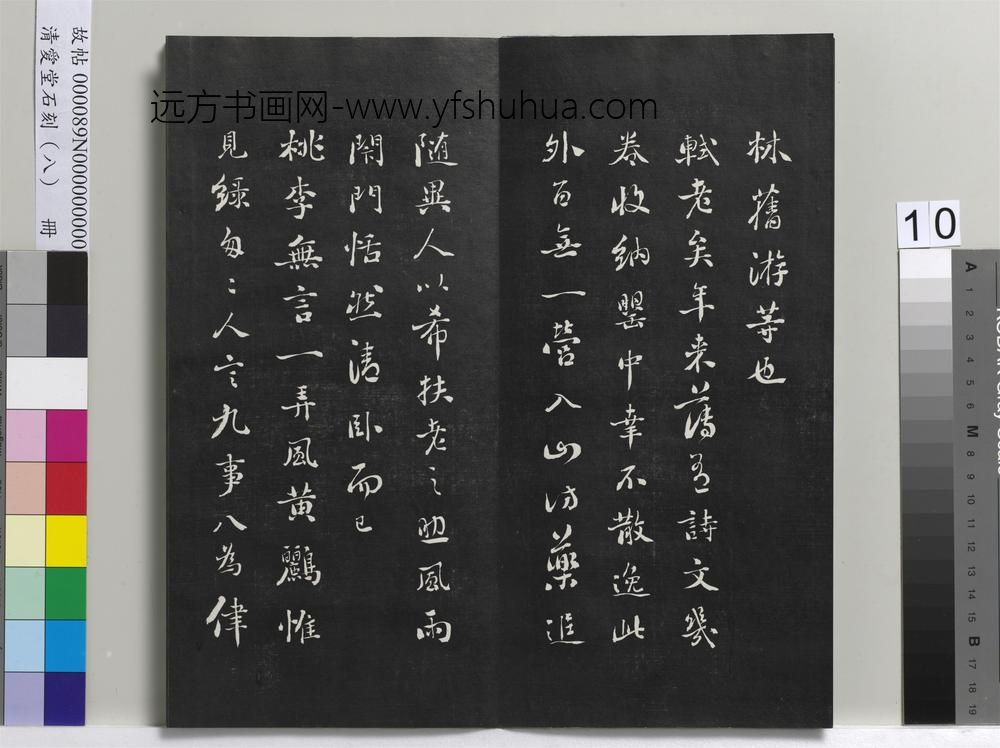 远方书画网-www.yfshuhua.com
故帖 000089N000000000
清愛堂石刻(八) 冊
10
林舊游等也
軾老矣年來舊有詩文幾
卷收納罌中幸不散逸此
外百無一營入山訪藥追
随異人以希扶老之
風雨
閉門恬然清卧而已
桃李無言一弄風黄鸝惟
見緑匆々人言九事八為律
A 1 2 3 4 5 6 M 8 9 10 11 12 13 14 15 B 17 18 19